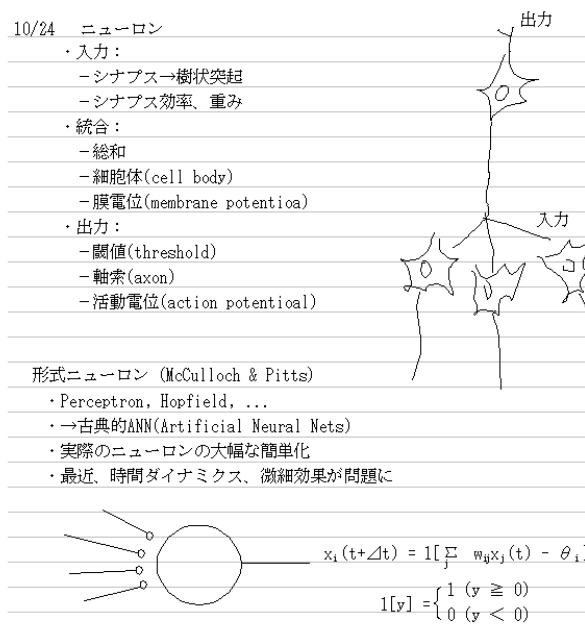 10/24 ニューロン
出力
・入力：
－シナプス→樹状突起
－シナプス効率、重み
・統合：
－総和
－細胞体(cell body)
－膜電位(membrane potentioa)
・出力：
入力
－閾値(threshold)
－軸索(axon)
－活動電位(action potentioal)
形式ニューロン (McCulloch & Pitts)
・Perceptron, Hopfield, ...
・→古典的ANN(Artificial Neural Nets)
・実際のニューロンの大幅な簡単化
・最近、時間ダイナミクス、微細効果が問題に
xi(t+⊿t) = 1[ Σj wijxj(t) - θi]
1[y] ={ 1 (y ≧ 0)
0 (y < 0)